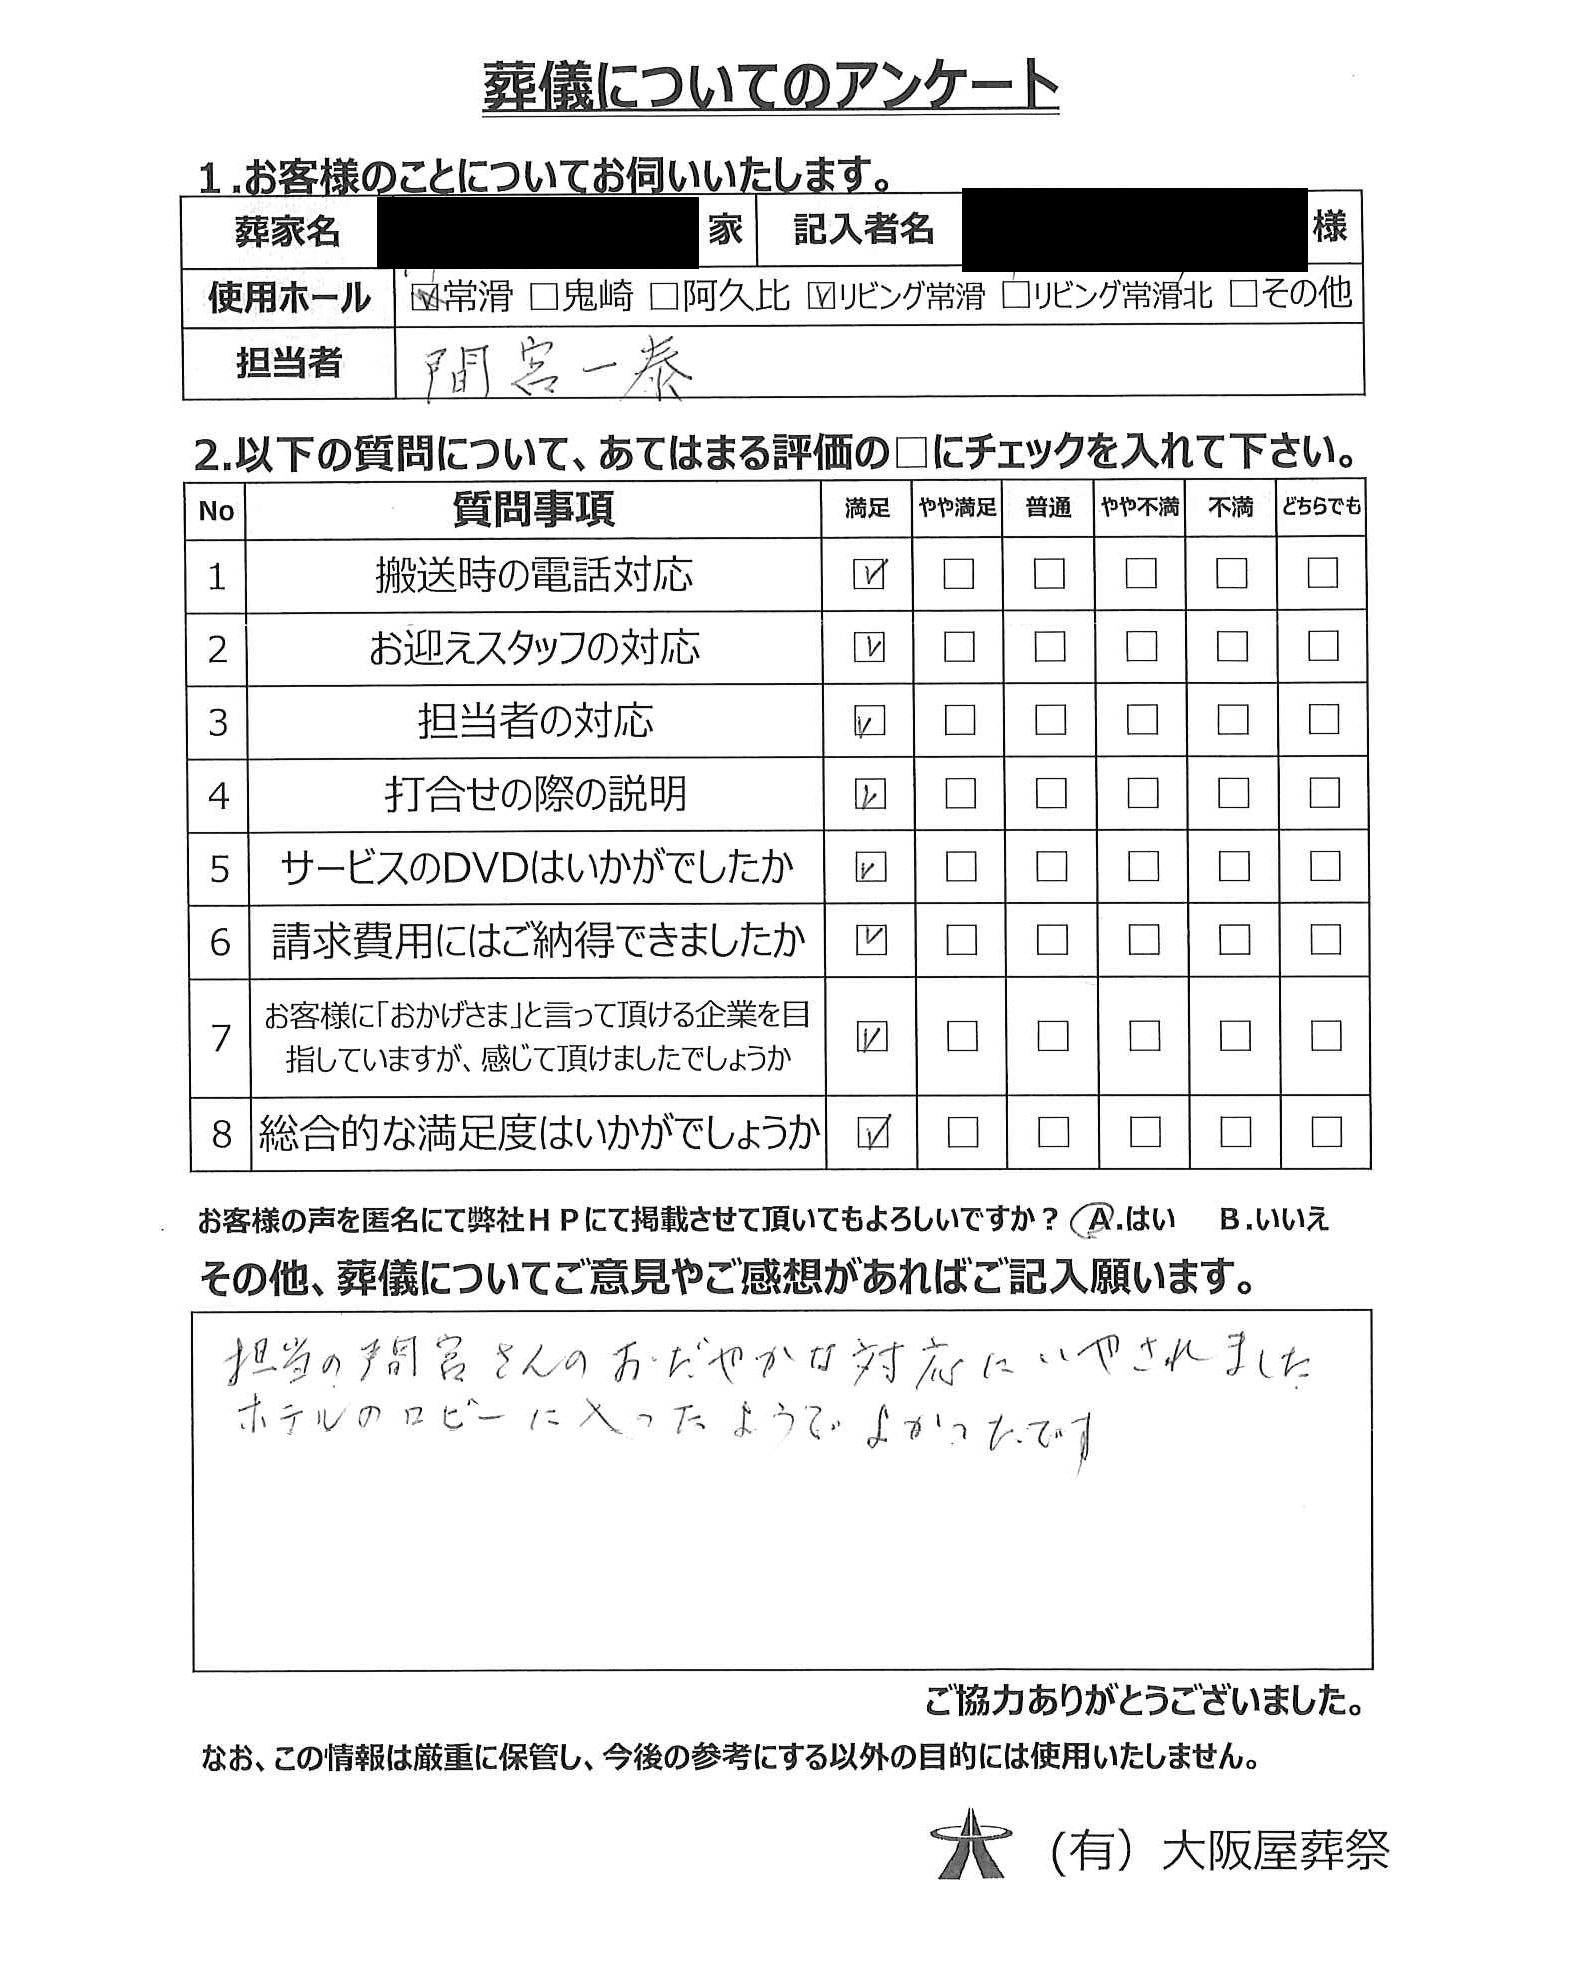 葬儀についてのアンケート
1.お客様のことについてお伺いいたします。
葬家名 家 記入者名 様
使用ホール ☑常滑 □鬼崎 □阿久比 ☑リビング常滑 □リビング常滑北 □その他
担当者 間宮一泰
2.以下の質問について、あてはまる評価の□にチェックを入れて下さい。
No 質問事項 満足 やや満足 普通 やや不満 不満 どちらでも
1 搬送時の電話対応 ☑ □ □ □ □ □
2 お迎えスタッフの対応 ☑ □ □ □ □ □
3 担当者の対応 ☑ □ □ □ □ □
4 打合せの際の説明 ☑ □ □ □ □ □
5 サービスのDVDはいかがでしたか ☑ □ □ □ □ □
6 請求費用にはご納得できましたか ☑ □ □ □ □ □
7 お客様に「おかげさま」と言って頂ける企業を目
指していますが、感じて頂けましたでしょうか ☑ □ □ □ □ □
8 総合的な満足度はいかがでしょうか ☑ □ □ □ □ □
お客様の声を匿名にて弊社HPにて掲載させて頂いてもよろしいですか? A.はい B.いいえ
その他、葬儀についてご意見やご感想があればご記入願います。
担当の間宮さんのおだやかな対応にいやされました
ホテルのロビーに入ったようでよかったです
ご協力ありがとうございました。
なお、この情報は厳重に保管し、今後の参考にする以外の目的には使用いたしません。
(有)大阪屋葬祭